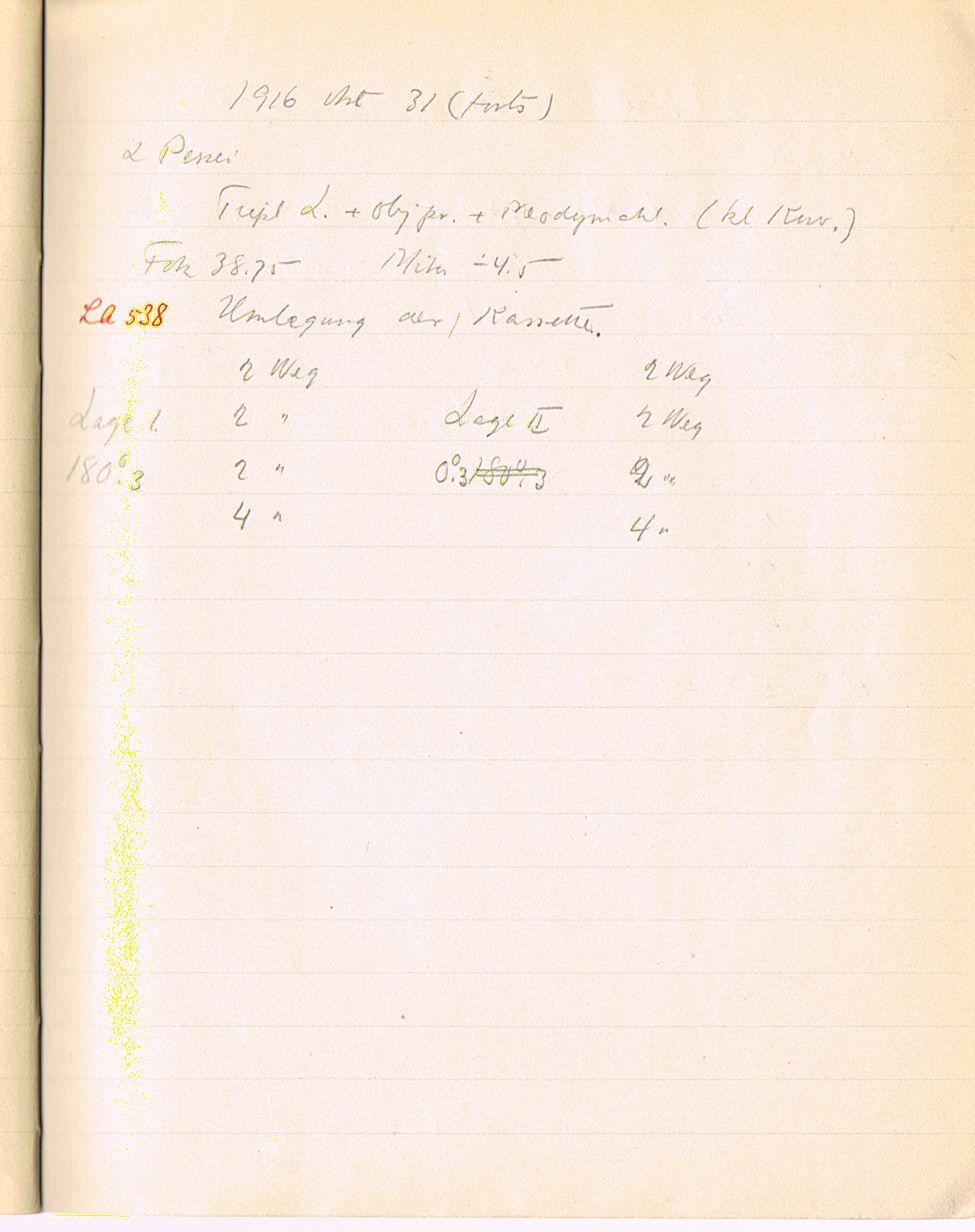 1916 Okt 31 (Forts)
α Persei
Tripl L. + Objpr. + Neodymchl. (kl Kuv.)
Fok 38.75 Mikr -4.5
LA 538 Umlegung der Kassette.
2 Weg 2 Weg
Lage I. 2 " Lage II 2 Weg
180°.3 2 " 0°.3 180°.3 2 "
4 " 4 "